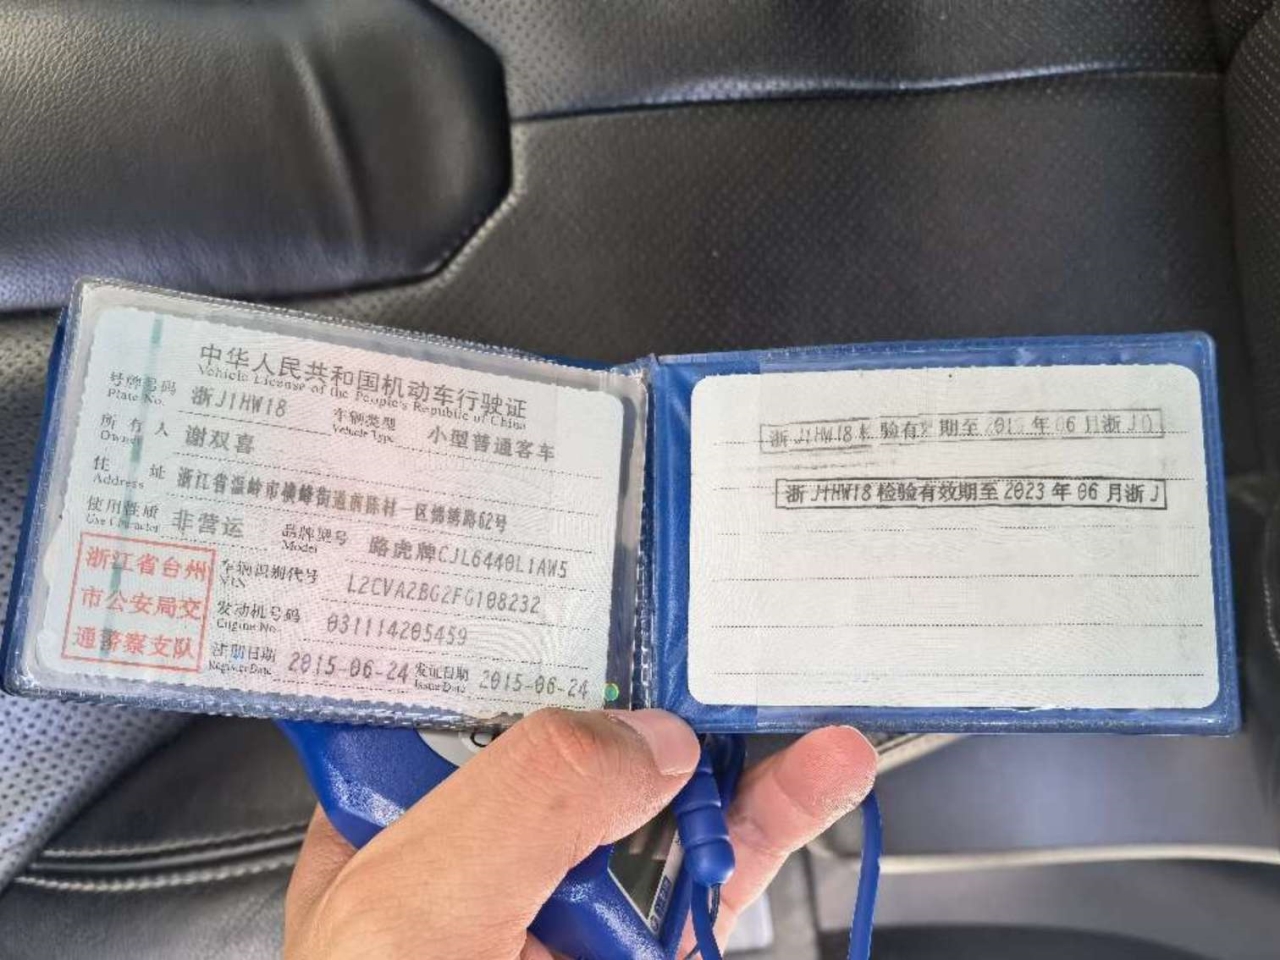 中华人民共和国机动车行驶证
Vehicle License of the People's Republic of China
号牌号码 浙J1HW18 车辆类型 小型普通客车
Plate No. Vehicle Type
所有人 谢双喜
Owner
住址 浙江省温岭市横峰街道前陈村一区锦绣路62号
Address
使用性质 非营运 品牌型号 路虎牌CJL6440L1AW5
Use Character Model
浙江省台州
市公安局交
通警察支队
车辆识别代号 L2CVA2BG2FG108232
VIN
发动机号码 031114205459
Engine No.
注册日期 2015-06-24 发证日期 2015-06-24
Register Date Issue Date
浙J1HW18 验有 期至 年06月浙J
浙J1HW18检验有效期至2023年06月浙J